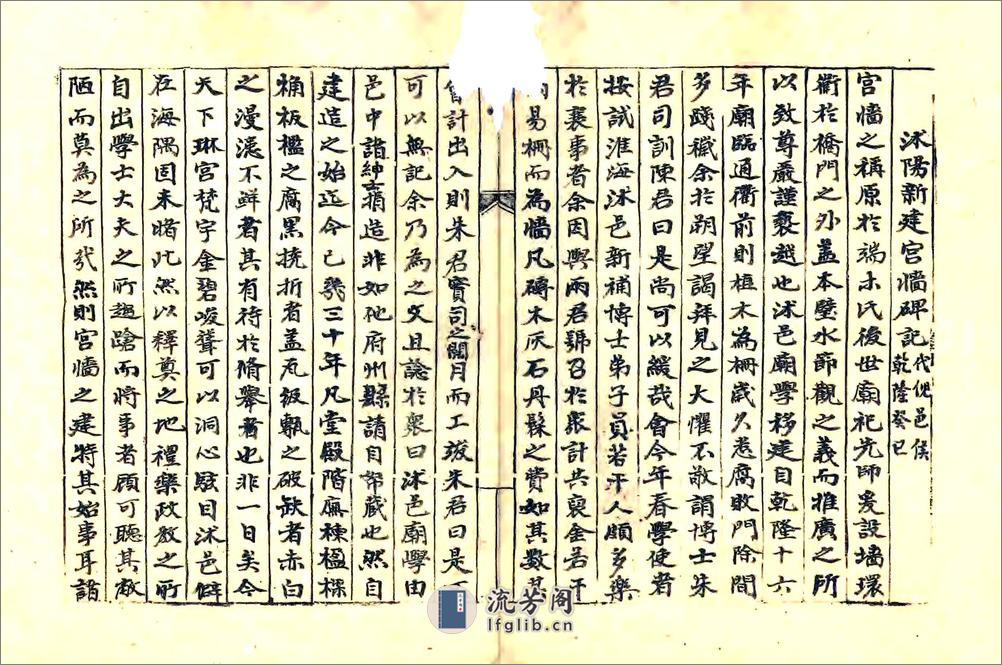 沭陽新建宮牆碑記代倪邑侯乾隆癸巳
宮牆之稱原於端木氏後世廟祀先師爰設墻環
衢於橋門之外蓋本璧水節觀之義而推廣之所
以致尊嚴謹褻越也沭邑廟學移建自乾隆十六
年廟臨通衢前則植木為柵歲久惹腐敗門除間
多踐穢余於朔望謁拜見之大懼不敬謂博士朱
君司訓陳君曰是尚可以緩哉會今年春學使者
按試淮海沭邑新補博士弟子員若干人頗多樂
於襄事者余因與兩君號召於眾計共裒金若干
易柵而為牆凡磚木灰石丹髹之費如其數其
會計出入則朱君實司之閱月而工竣朱君曰是不
可以無記余乃為之文且諗於眾曰沭邑廟學由
邑中諸紳士捐造非如他府州縣請自帑藏也然自
建造之始迄今已幾三十年凡堂殿階廡棟楹榱
桷板檻之腐黑撓折者蓋瓦級甎之破缺者赤白
之漫漶不鮮者其有待於脩舉者也非一日矣今
天下琳宮梵宇金碧峻聳可以洞心駭目沭邑僻
在海隅固未睹此然以釋奠之地禮樂政教之所
自出學士大夫之所趨蹌而將事者顧可聽其敝
陋而莫為之所哉然則宮牆之建特其始事耳諸
流芳阁
lfglib.cn